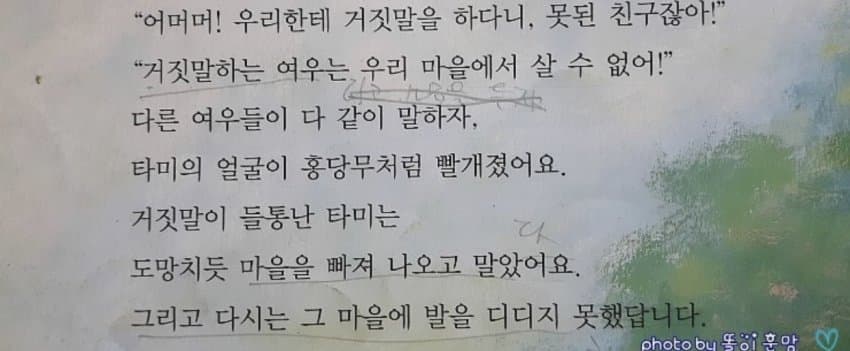 “어머머! 우리한테 거짓말을 하다니, 못된 친구잖아!”
“거짓말하는 여우는 우리 마을에서 살 수 없어!”
다른 여우들이 다 같이 말하자,
타미의 얼굴이 홍당무처럼 빨개졌어요.
거짓말이 들통난 타미는
다
도망치듯 마을을 빠져 나오고 말았어요.
그리고 다시는 그 마을에 발을 디디지 못했답니다.
photo by 똘이훈맘